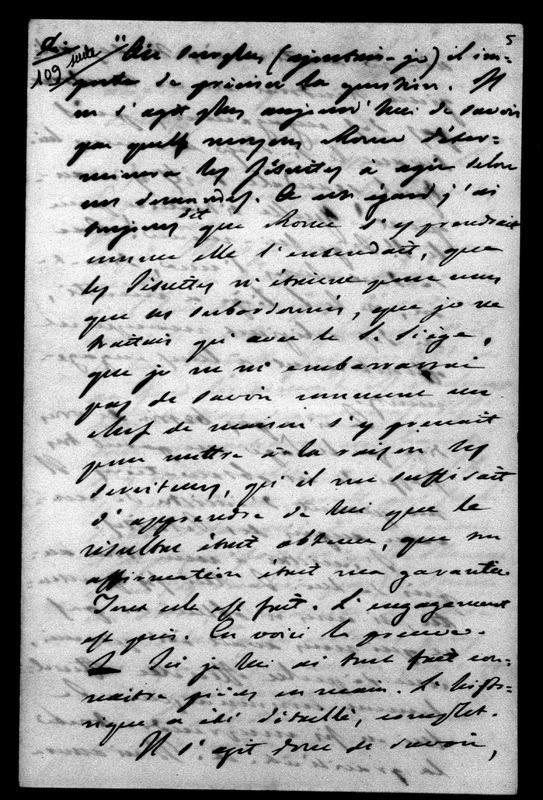 5
109 suite
"Au surplus (ajoutais-je) il im-
porte de préciser la question. Il
ne s'agit plus aujourd'hui de savoir
par quels moyens Rome déter-
minera les Jésuites à agir selon
nos demandes. A cet égard j'ai
toujours dit que Rome s'y prendrait
comme elle l'entendait, que
les Jésuites n'étaient pour nous
que des subordonnés, que je ne
traitais qu'avec le S. Siège,
que je ne m'embarrassai
pas de savoir comment un
chef de maison s'y prenait
pour mettre à la raison ses
serviteurs, qu'il me suffisait
d'apprendre de lui que le
résultat était obtenu, que son
affirmation était ma garantie.
Tout cela est fait. L'engagement
est pris. En voici la preuve.
Ici je lui ai tout fait con-
naître pièces en main. L'histo-
rique a été détaillé, complet.
Il s'agit donc de savoir,